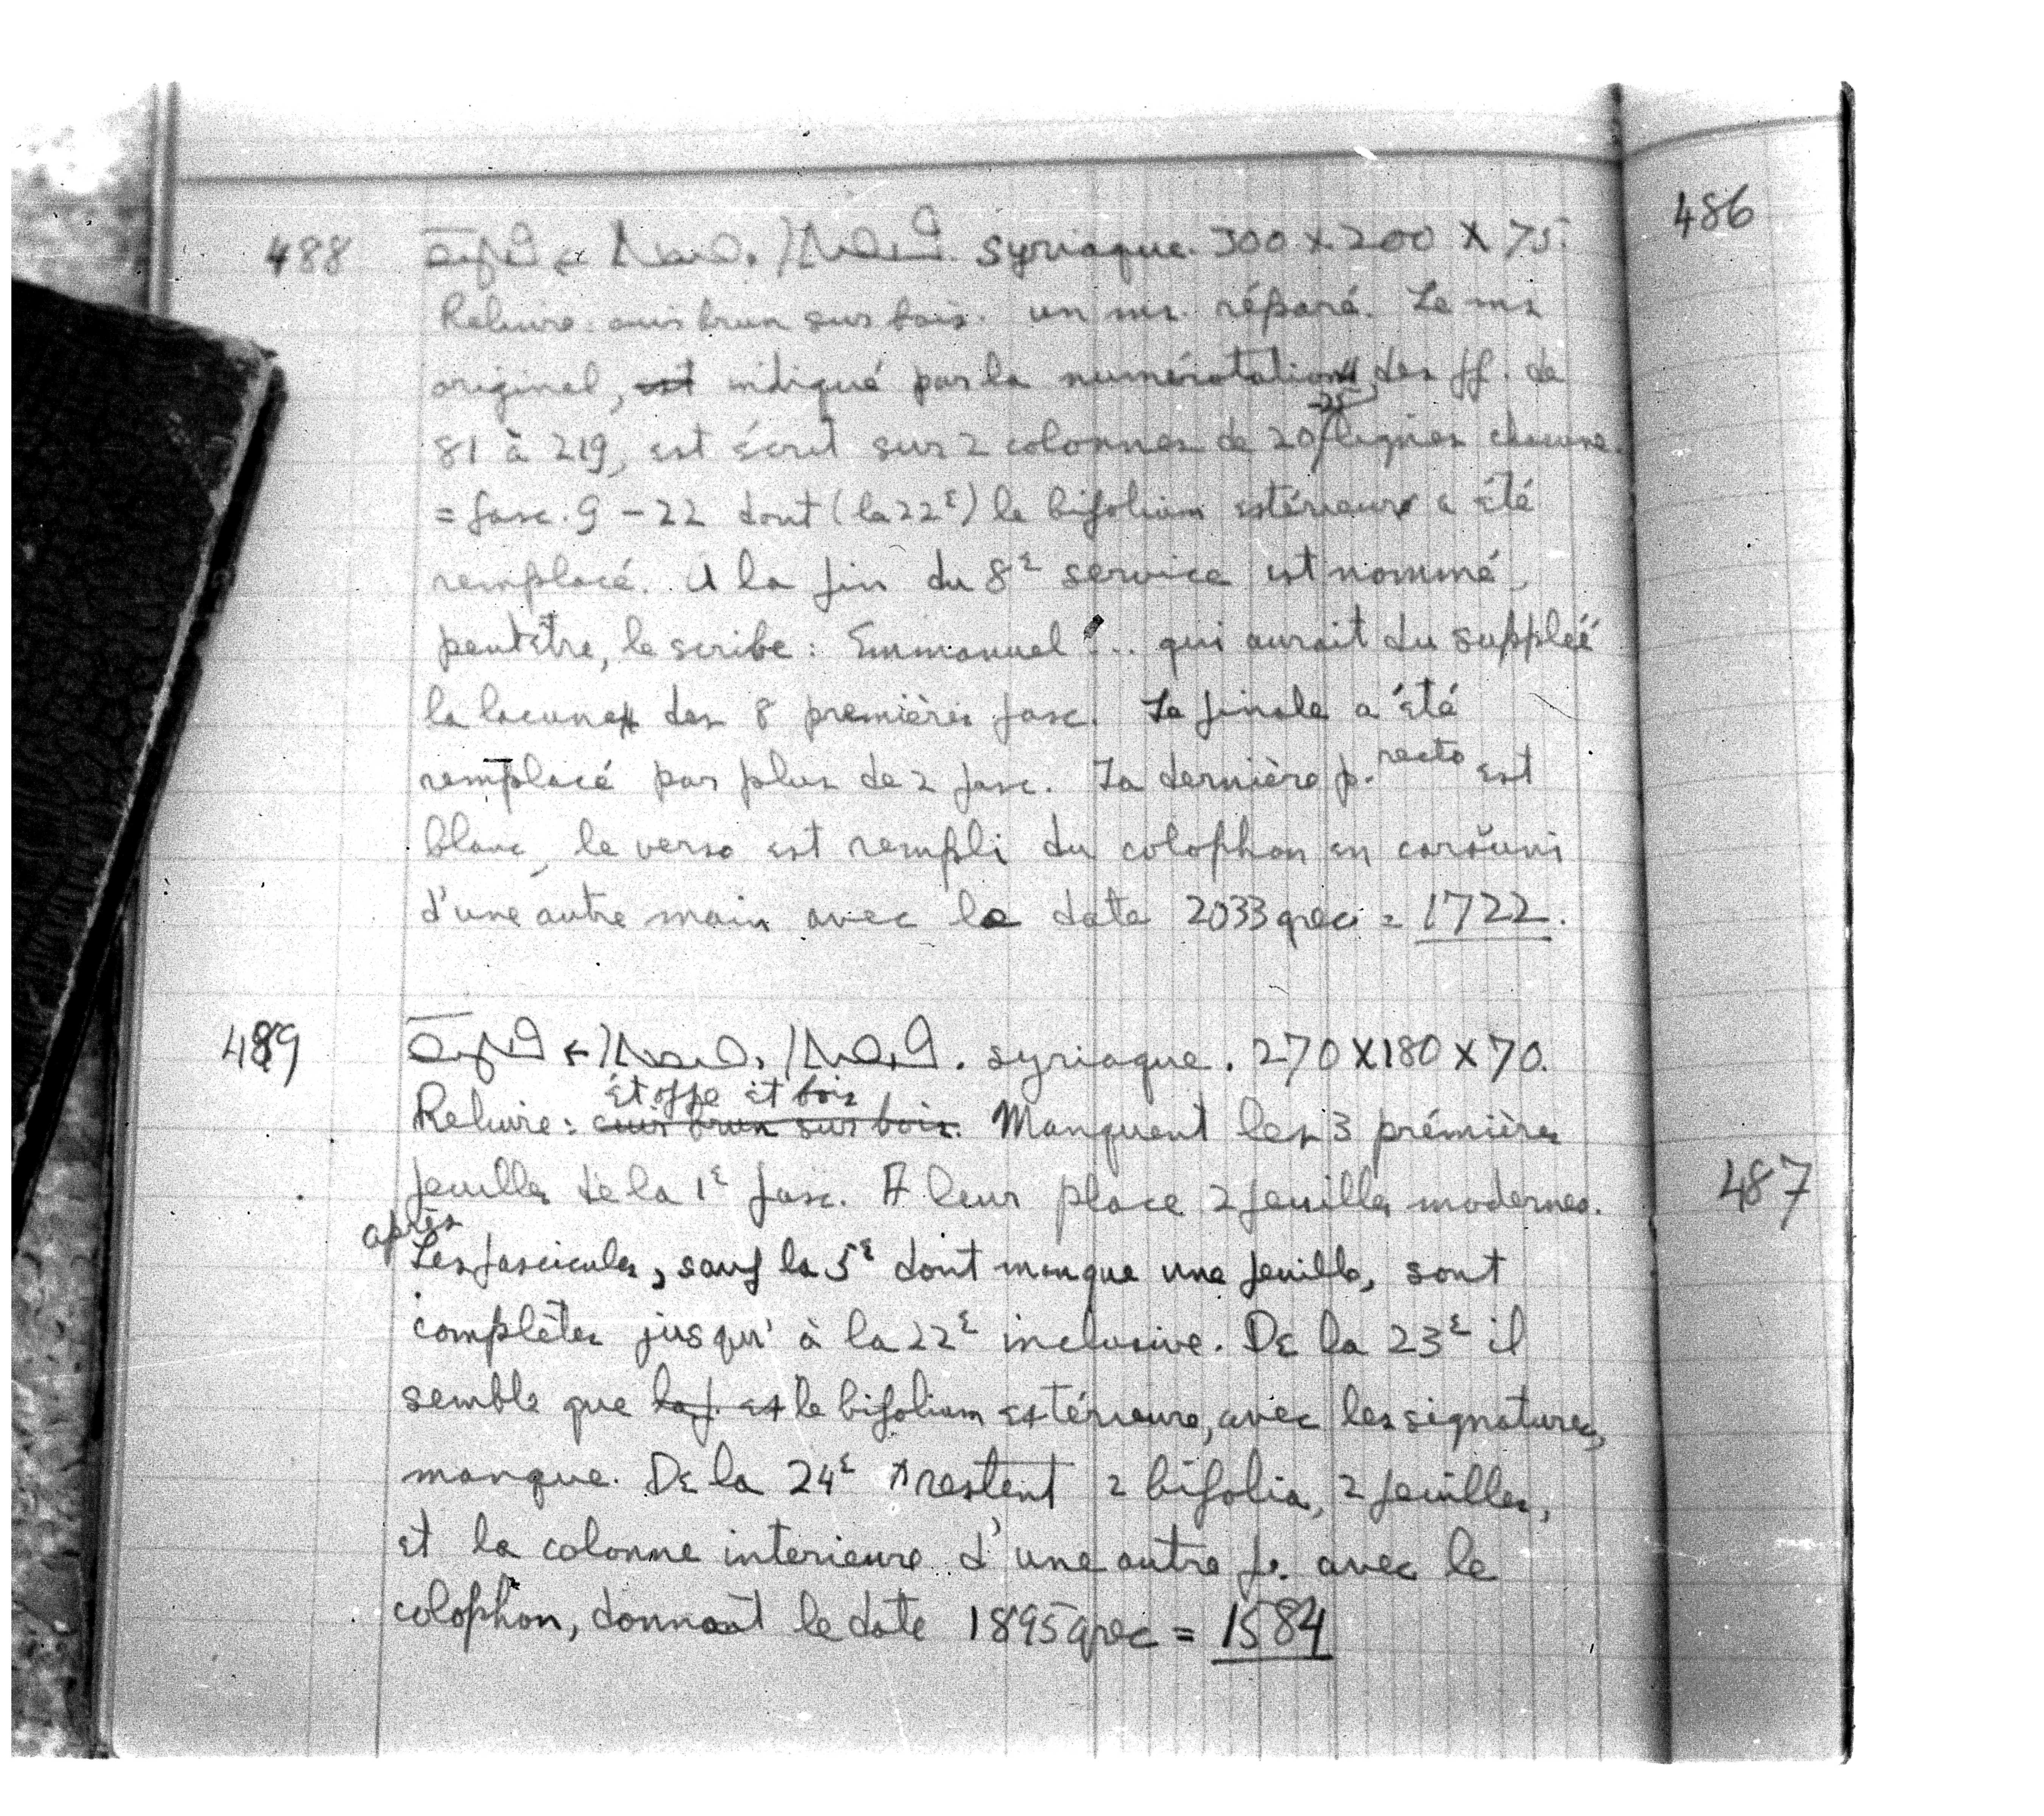 486
488 syriaque. 300 x 200 x 75.
Reliure: cuir brun sur bois. un ms. réparé. Le ms
original, est indiqué par la numérotation des ff. de
81 à 219, est écrit sur 2 colonnes de 20-25 lignes chacune.
= fasc. 9 - 22 dont (la 22e) le bifolium extérieur a été
remplacé. A la fin du 8e service est nommé,
peutêtre, le scribe: Emmanuel ... qui aurait du suppleé
la lacune des 8 premières fasc. La finale a été
remplacé par plus de 2 fasc. La dernière p. recto est
blanc, le verso est rempli du colophon en caršuni
d'une autre main avec la date 2033 grec = 1722.
489 syriaque. 270 x 180 x 70.
étoffe et bois
Reliure: cuir brun sur bois. Manquent les 3 prémières
feuilles de la 1e fasc. A leur place 2 feuilles modernes.
487
après
Les fascicules, sauf la 5e dont manque une feuille, sont
complètes jusqu'à la 22e inclusive. De la 23e il
semble que la f. ex le bifolium extérieure, avec les signatures,
manque. De la 24e restent 2 bifolia, 2 feuilles,
et la colonne interieure d'une autre f. avec le
colophon, donnant le date 1895 grec = 1584